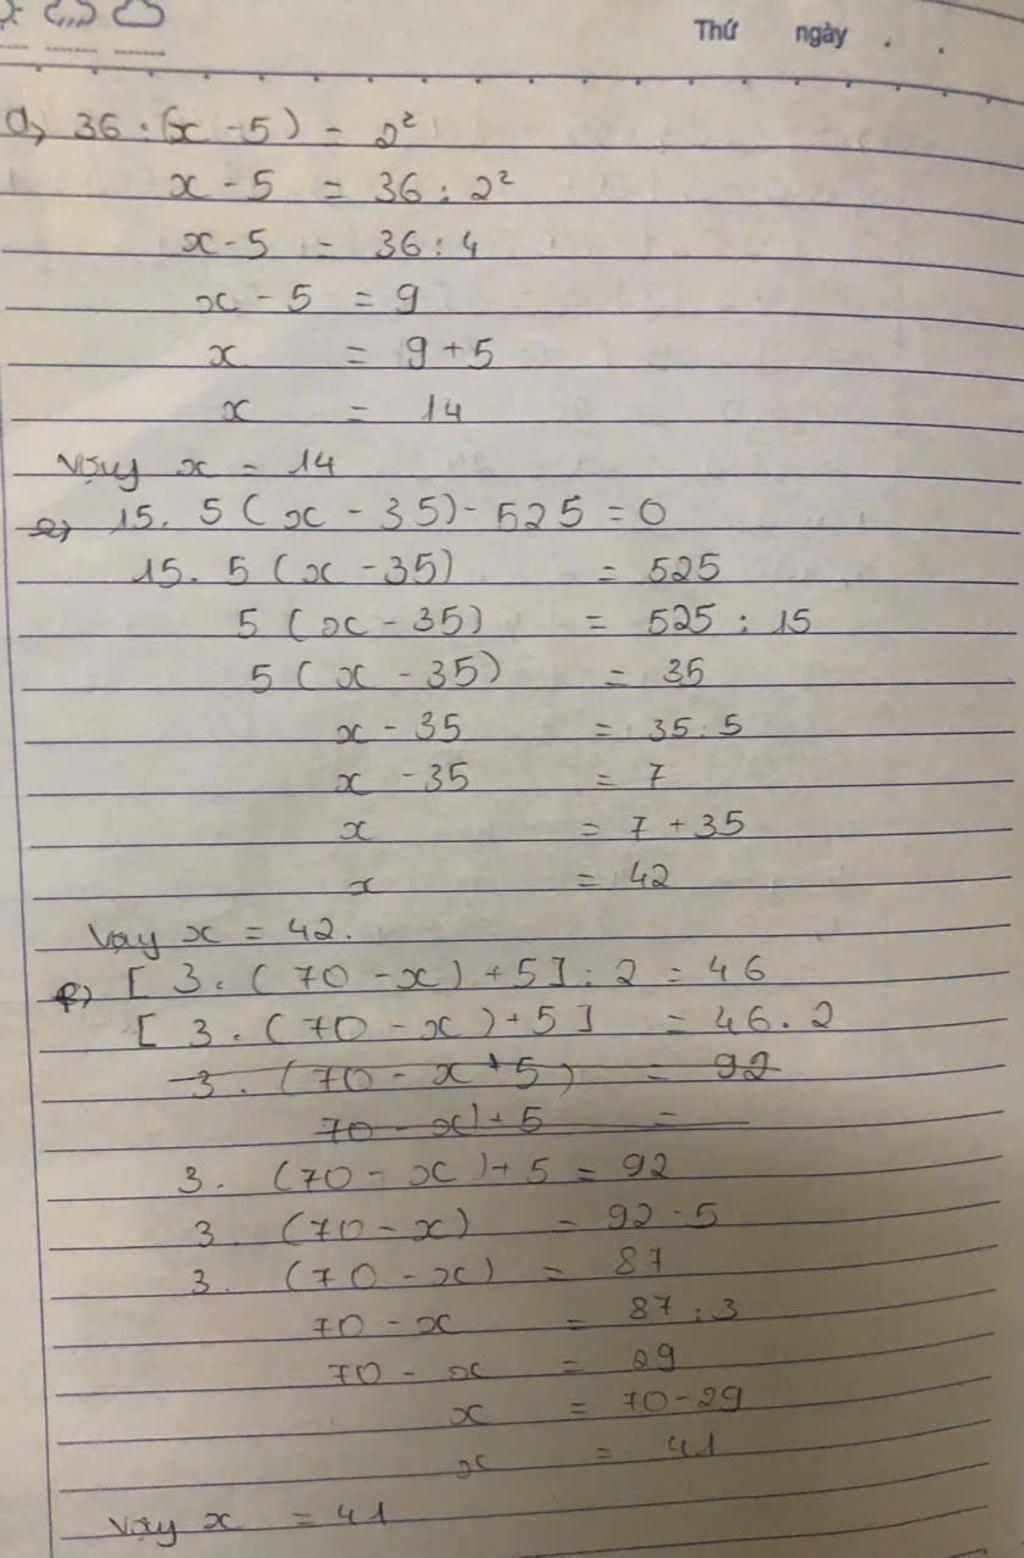 Thứ ngày . .
d, 36 : (x - 5) = 2²
x - 5 = 36 : 2²
x - 5 = 36 : 4
x - 5 = 9
x = 9 + 5
x = 14
Vậy x = 14
e, 15. 5 ( x - 35) - 525 = 0
15. 5 ( x - 35) = 525
5 ( x - 35) = 525 : 15
5 ( x - 35) = 35
x - 35 = 35 : 5
x - 35 = 7
x = 7 + 35
x = 42
Vậy x = 42.
f, [ 3. ( 70 - x ) + 5 ] : 2 = 46
[ 3. ( 70 - x ) + 5 ] = 46 . 2
3. (70 - x + 5) = 92
70 - x) + 5 =
3. (70 - x ) + 5 = 92
3. (70 - x) = 92 - 5
3. (70 - x) = 87
70 - x = 87 : 3
70 - x = 29
x = 70 - 29
x = 41
Vậy x = 41